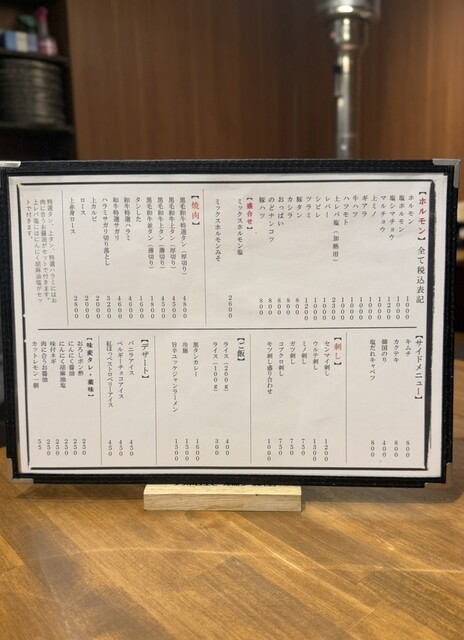 【ホルモン】全て税込表記
ホルモン 1000
塩ホルモン 1000
塩シマチョウ
マルチョウ
上ミノ
ギアラ
牛ハツ 1000
ハツモト
上レバ塩(加熱用)
レバー
シビレ
豚タン
カシラ 800
おっぱい 800
のどナンコツ 800
豚ハツ 800
【盛合せ】
ミックスホルモン塩
ミックスホルモンみそ
2600
【焼肉】
黒毛和牛特選タン(厚切り) 4800
黒毛和牛上タン(厚切り) 4500
黒毛和牛上タン(薄切り)
黒毛和牛並タン(薄切り)
タンした 1600
和牛特選ハラミ
和牛特選サガリ
ハラミサガリ切り落とし
上カルビ
ロース
上赤身ロース 2800
特選タン、上タン、特選ハラミにはお肉に合うお醤油がセットで付きます。
上レバ塩にはにんにく胡麻油塩がセットで付きます。
【サイドメニュー】
キムチ 800
カクテキ 800
韓国のり 400
塩だれキャベツ 800
【刺し】
センマイ刺し 1200
ウルテ刺し 1300
ミノ刺し 750
ガツ刺し 750
コブクロ刺し 750
モツ刺し盛り合わせ 1000
【ご飯】
ライス(200g) 400
ライス(100g) 300
黒タンカレー 1600
冷麺 1300
旨辛ユッケジャンラーメン 1500
【デザート】
バニラアイス 450
ベルギーチョコアイス 450
紅ほっぺストロベリーアイス 450
【味変タレ・薬味】
おろしポン酢 250
にんにく醤油 250
にんにく胡麻油塩 250
味付ネギ 250
肉に合うお醤油 250
カットレモン一個 55